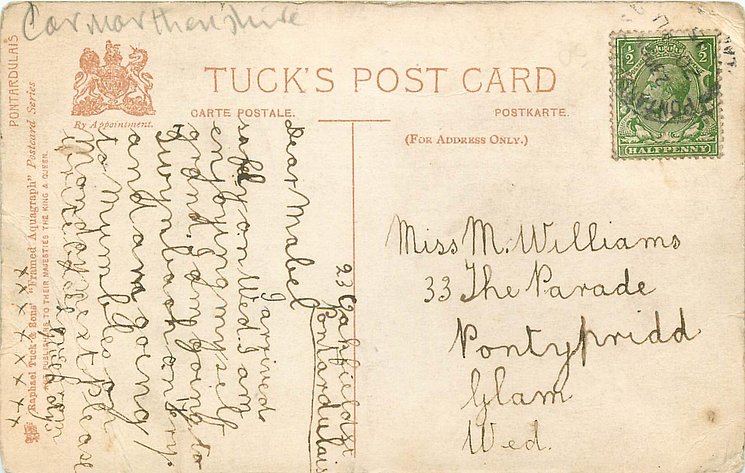 Carmarthenshire
PONTARDULAIS
TUCK'S POST CARD
By Appointment.
CARTE POSTALE.
POSTKARTE.
(FOR ADDRESS ONLY.)
1/2 1/2
HALFPENNY
Raphael Tuck & Sons' "Framed Aquagraph" Postcard Series
ART PUBLISHERS TO THEIR MAJESTIES THE KING & QUEEN.
23 Oakfield St
Pontardulais
Dear Mabel
I arrived
safely on Wed. I am
enjoying myself
grand. I am going to
on
and am going
to Mumbles
Monday next please
x x x x x x x x
Miss M. Williams
33 The Parade
Pontypridd
Glam
Wed.